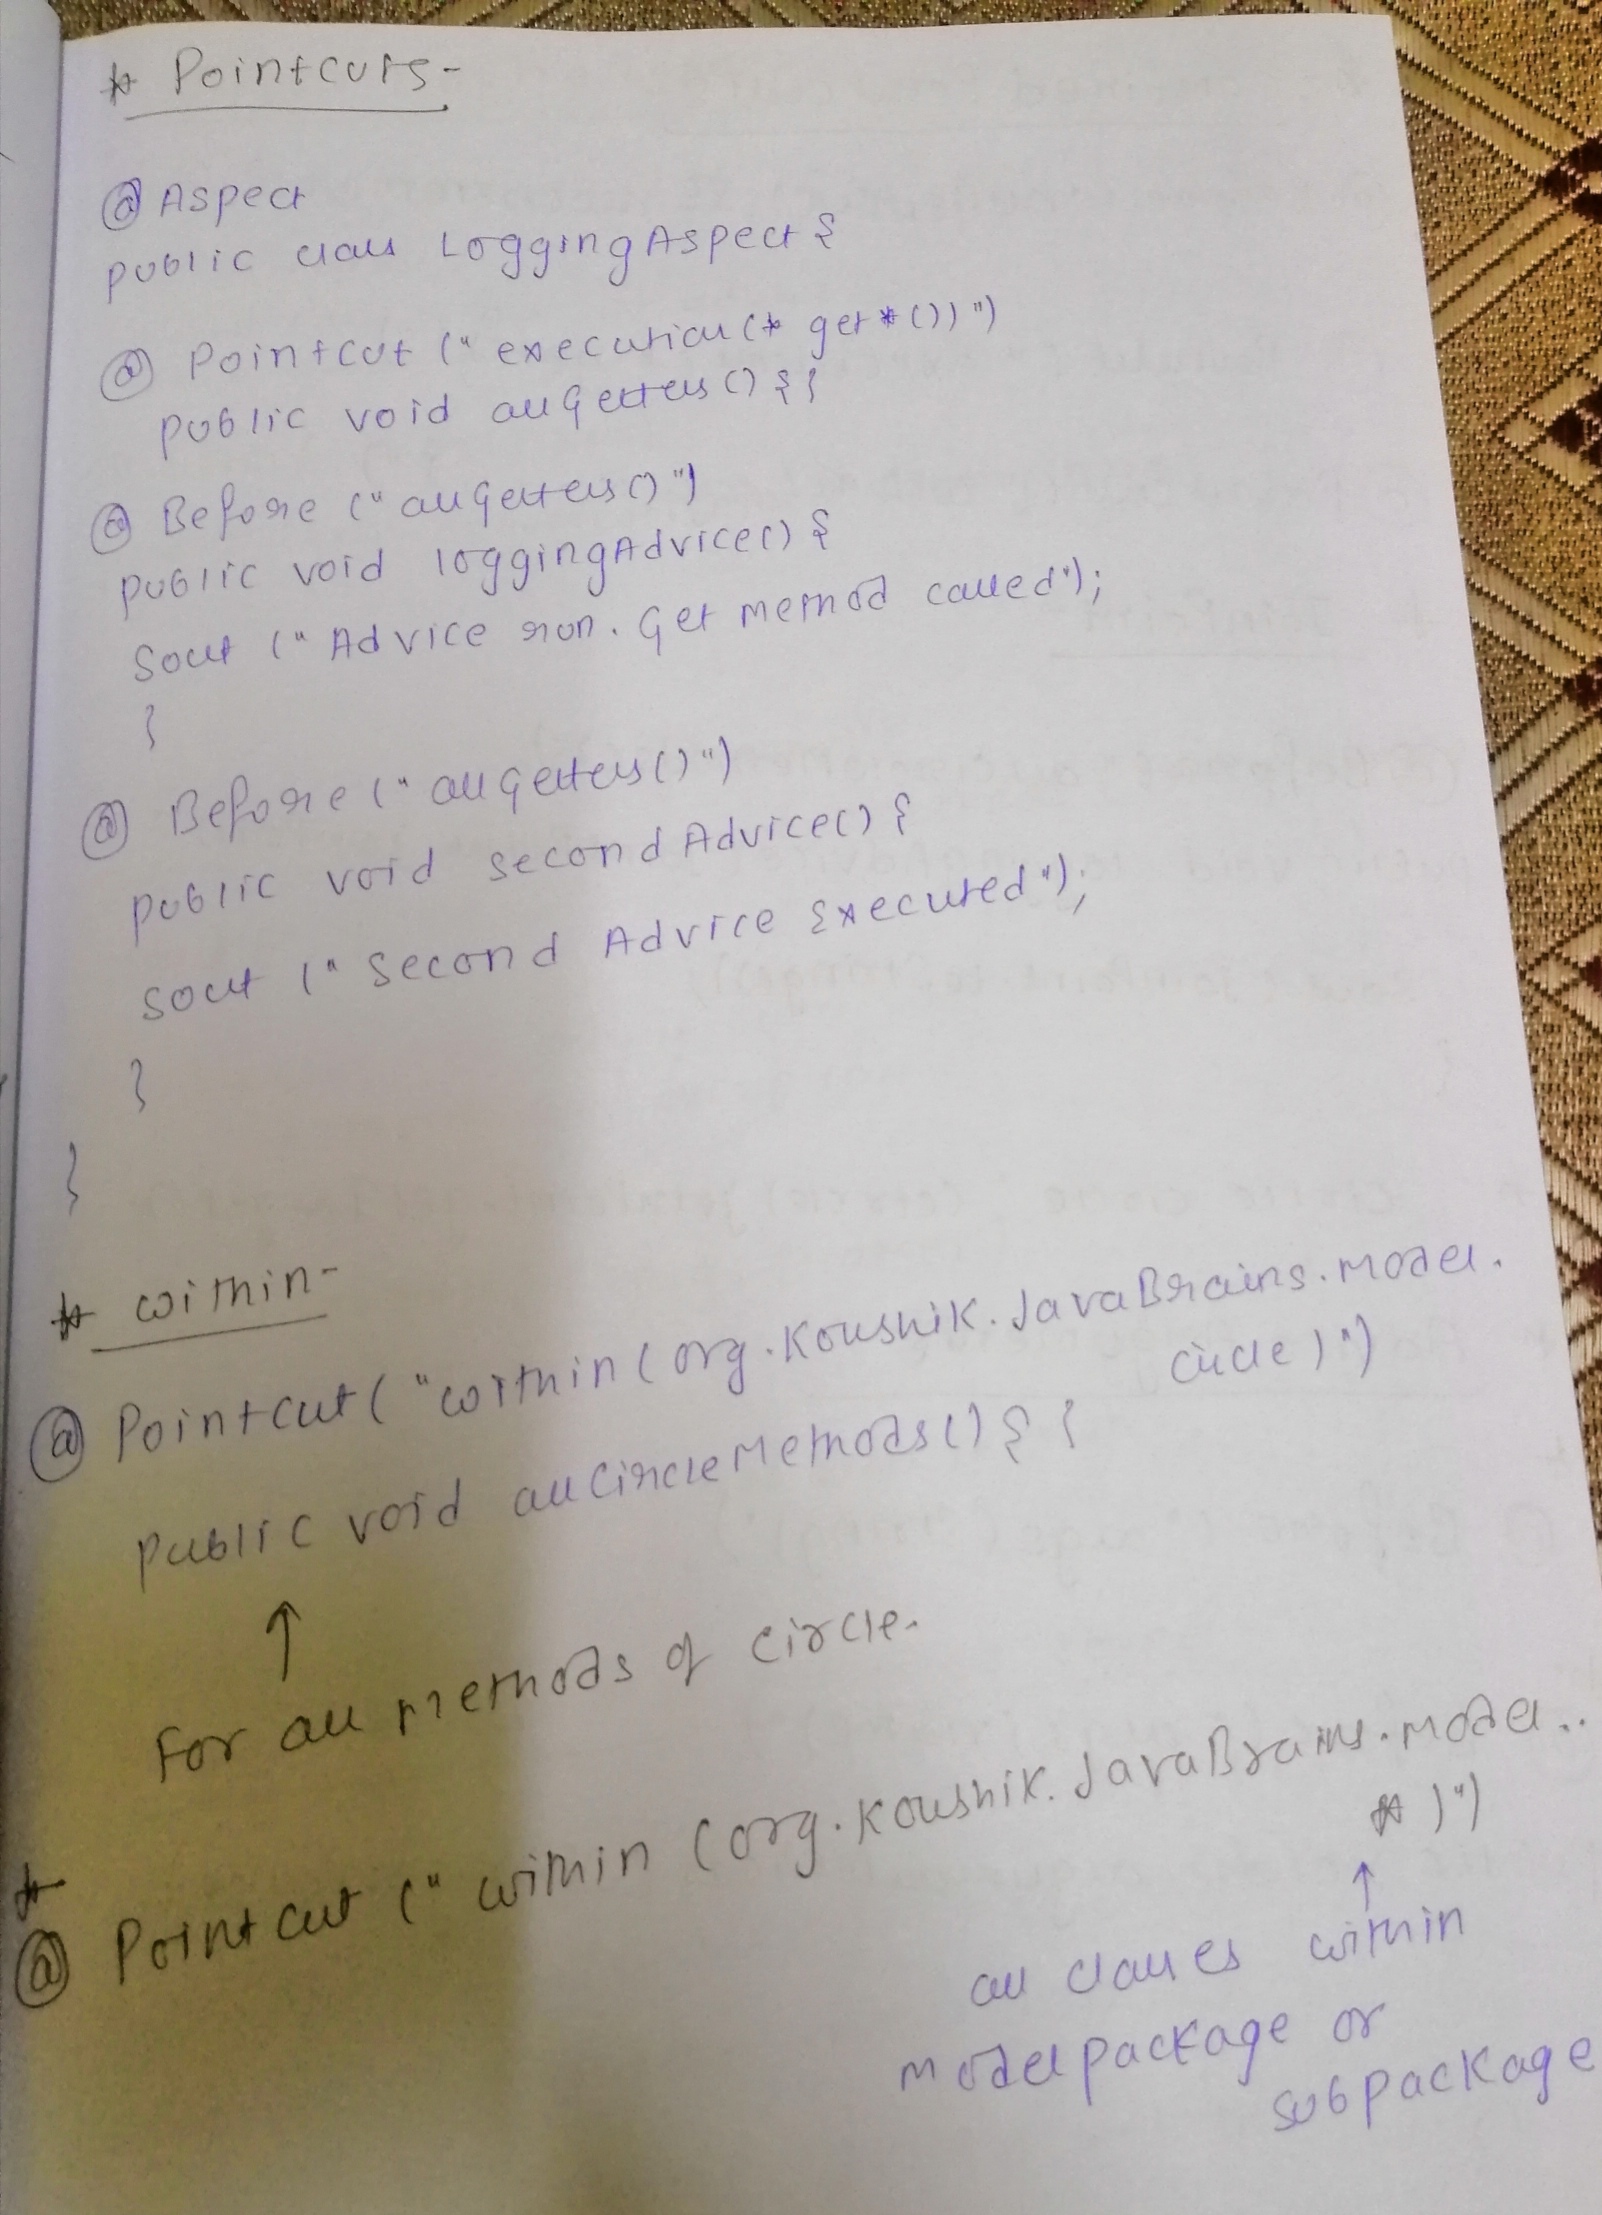 * Pointcuts-
@Aspect
public class LoggingAspect {
@ Pointcut ("execution(* get*())")
public void allGetters() {}
@ Before ("allGetters()")
public void loggingAdvice() {
Sout ("Advice run. Get method called");
}
@ Before ("allGetters()")
public void secondAdvice() {
Sout ("Second Advice Executed");
}
}
* within-
@ Pointcut ("within (org.Koushik.JavaBrains.Model.
Circle)")
public void allCircleMethods() { }
↑
For all methods of circle.
*
@ Pointcut ("within (org.Koushik.JavaBrains.Model..
*)")
↑
all classes within
model package or
subpackage